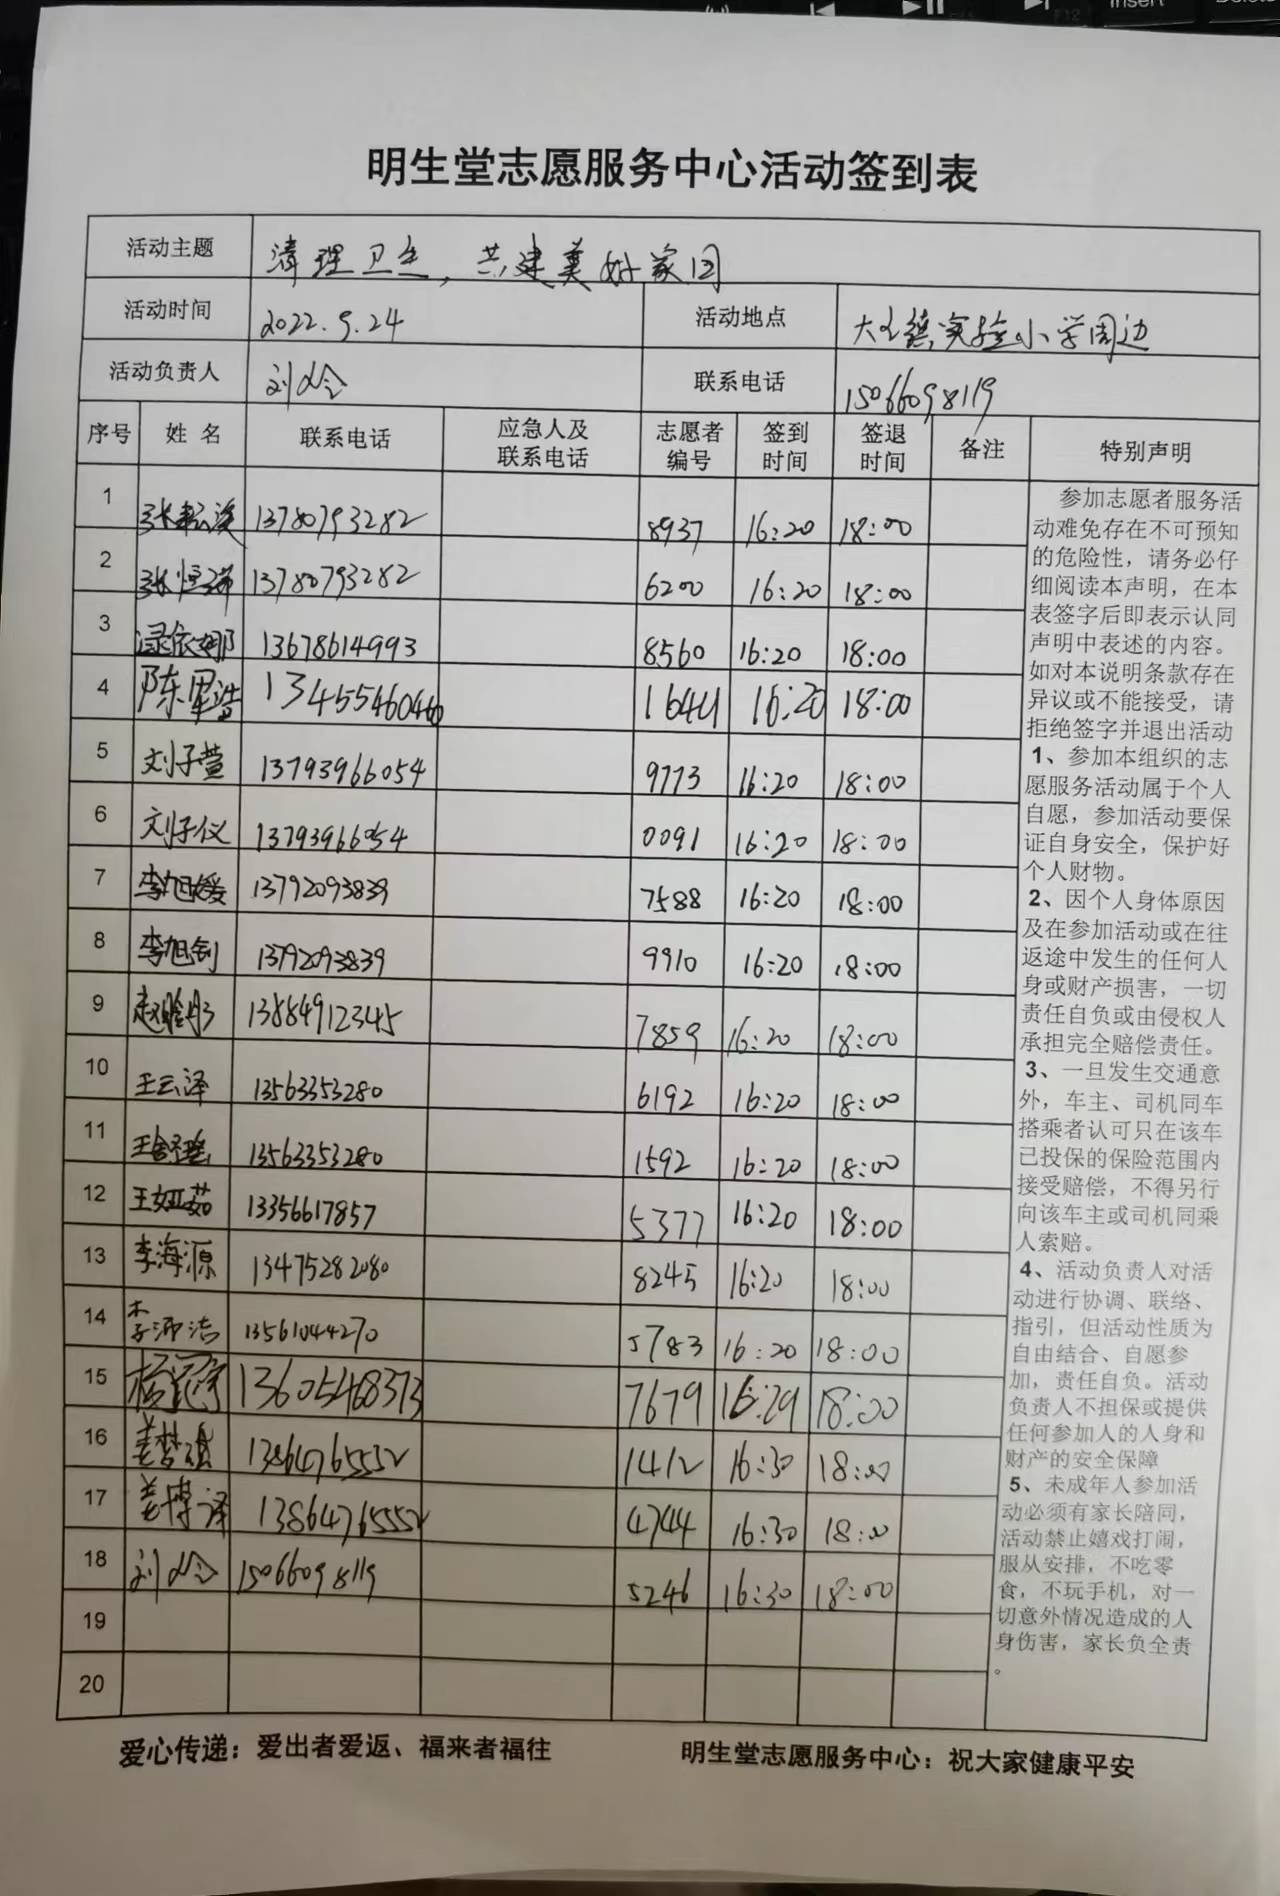 Insert
F12
明生堂志愿服务中心活动签到表
活动主题 清理卫生，共建美好家园
活动时间 2022.9.24 活动地点 大王镇实验小学周边
活动负责人 联系电话 15066098119
序号 姓名 联系电话 应急人及联系电话 志愿者编号 签到时间 签退时间 备注 特别声明
1 13780793282 8937 16:20 18:00
2 张恒瑞 13780793282 6200 16:20 18:00
3 13678614993 8560 16:20 18:00
4 陈军浩 1644 16:20 18:00
5 刘子萱 13793966054 9773 16:20 18:00
6 刘子仪 13793966054 0091 16:20 18:00
7 李旭媛 13792093839 7588 16:20 18:00
8 李旭钊 13792093839 9910 16:20 18:00
9 13884912345 7859 16:20 18:00
10 王云泽 13563353280 6192 16:20 18:00
11 13563353280 1592 16:20 18:00
12 王娅茹 13356617857 5377 16:20 18:00
13 李海源 13475282080 8245 16:20 18:00
14 李沛洁 13561044270 5783 16:20 18:00
15 13605468373 7679 16:29 18:00
16 姜梦琪 13864765552 1412 16:30 18:00
17 姜博译 13864765552 4744 16:30 18:00
18 15066098119 5246 16:30 18:00
19
20
参加志愿者服务活
动难免存在不可预知
的危险性，请务必仔
细阅读本声明，在本
表签字后即表示认同
声明中表述的内容。
如对本说明条款存在
异议或不能接受，请
拒绝签字并退出活动
1、参加本组织的志
愿服务活动属于个人
自愿，参加活动要保
证自身安全，保护好
个人财物。
2、因个人身体原因
及在参加活动或在往
返途中发生的任何人
身或财产损害，一切
责任自负或由侵权人
承担完全赔偿责任。
3、一旦发生交通意
外，车主、司机同车
搭乘者认可只在该车
已投保的保险范围内
接受赔偿，不得另行
向该车主或司机同乘
人索赔。
4、活动负责人对活
动进行协调、联络、
指引，但活动性质为
自由结合、自愿参
加，责任自负。活动
负责人不担保或提供
任何参加人的人身和
财产的安全保障
5、未成年人参加活
动必须有家长陪同，
活动禁止嬉戏打闹，
服从安排，不吃零
食，不玩手机，对一
切意外情况造成的人
身伤害，家长负全责
。
爱心传递：爱出者爱返、福来者福往 明生堂志愿服务中心：祝大家健康平安